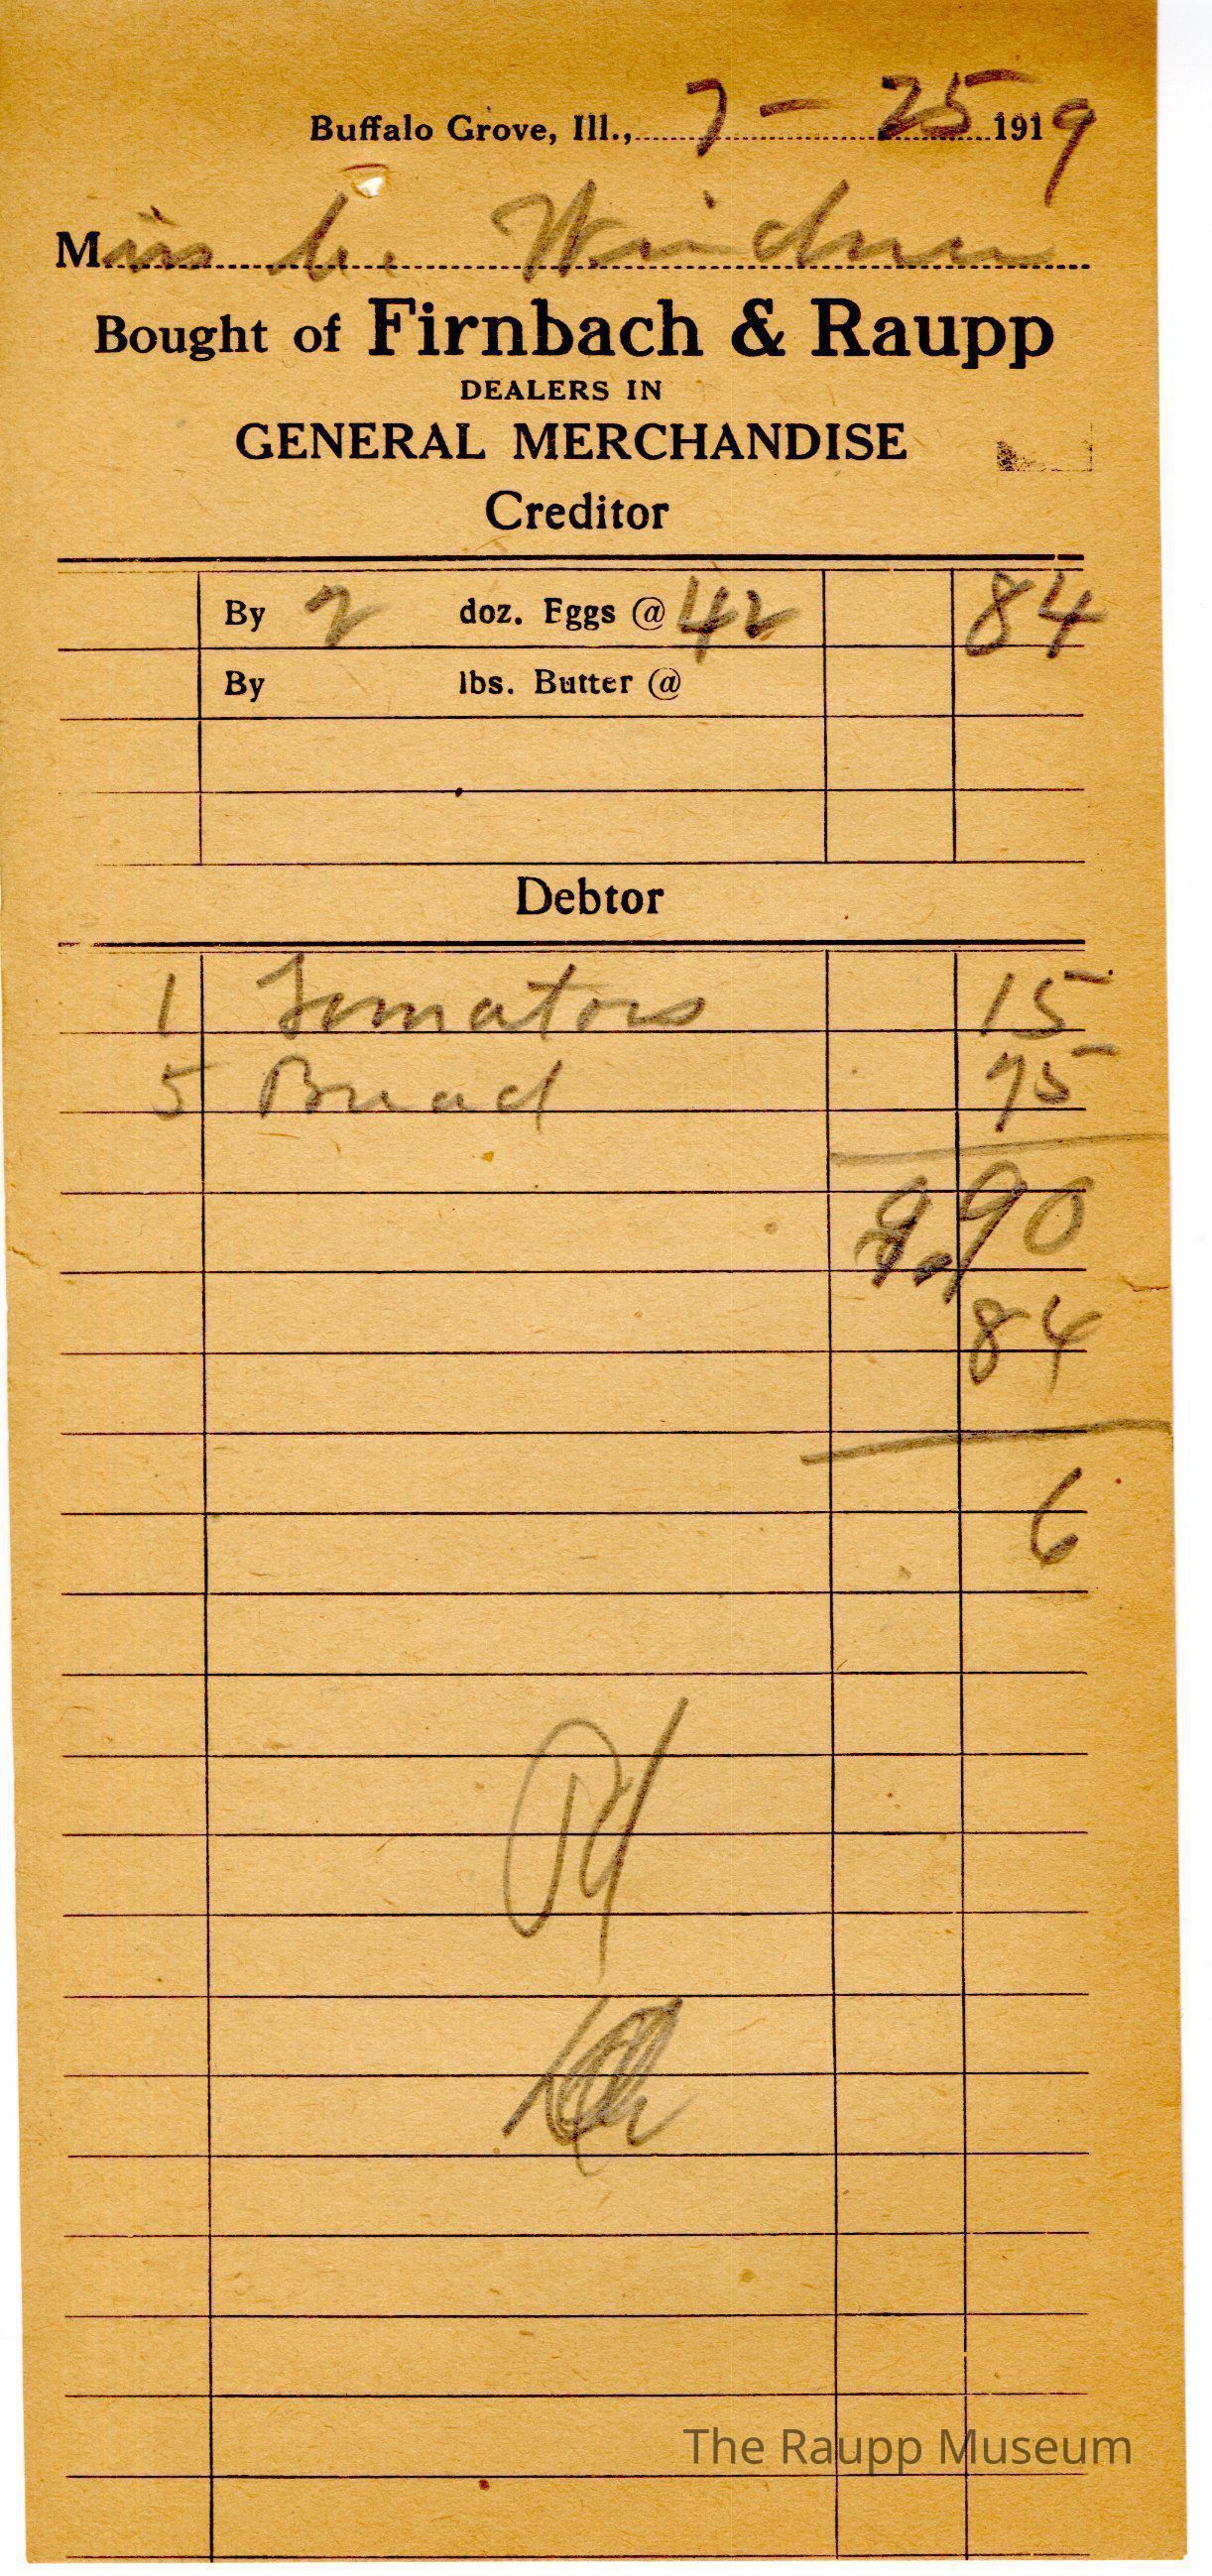 Buffalo Grove, Ill., 7 - 25 1919
Miss
Bought of Firnbach & Raupp
DEALERS IN
GENERAL MERCHANDISE
Creditor
By 2 doz. Eggs @ 42 84
By lbs. Butter @
Debtor
1 Tomatoes 15
5 Bread 75
90
84
6
The Raupp Museum